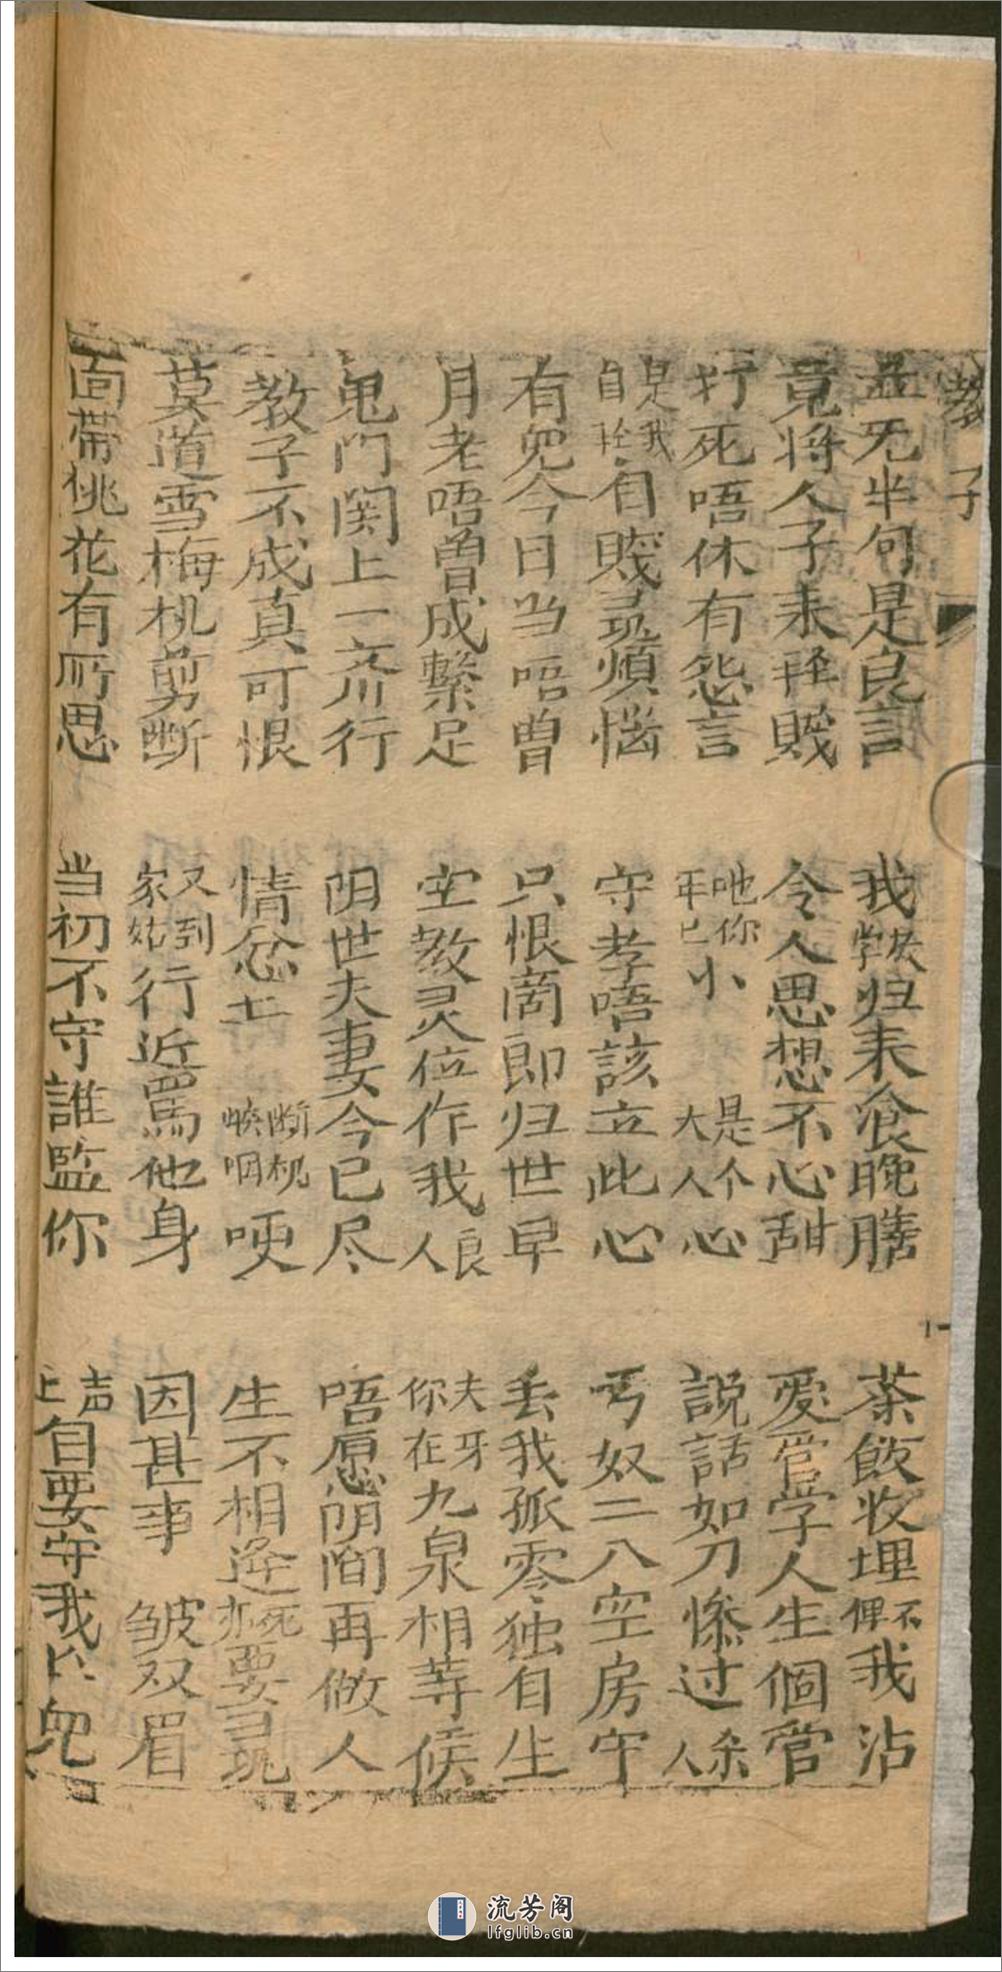 教子
並无半句是良言 我失學归耒飡晚膳 茶飯收埋不俾我沾
竟将人子耒轻賤 令人思想不心甜 爱管学人生個管
打死唔休有怨言 吔你年已小 是个大人心 説話如刀惨过杀人
是我自轻自賤寻煩惱 守孝唔該立此心 丐奴二八空房守
有児今日当唔曽 只恨啇即归世早 丢我孤零独自生
月老唔曽成繫足 空教灵位作我良人 夫牙你在九泉相等候
鬼门関上一齐行 阴世夫妻今已尽 唔愿阴間再做人
教子不成真可恨 情忿 断机喉咽哽 生不相逢死亦要寻
莫道雪梅机剪断 又到家姑行近罵他身 因甚事 皱双眉
面帶桃花有所思 当初不守誰監你 声上自要守我児
流芳阁
lfglib.cn